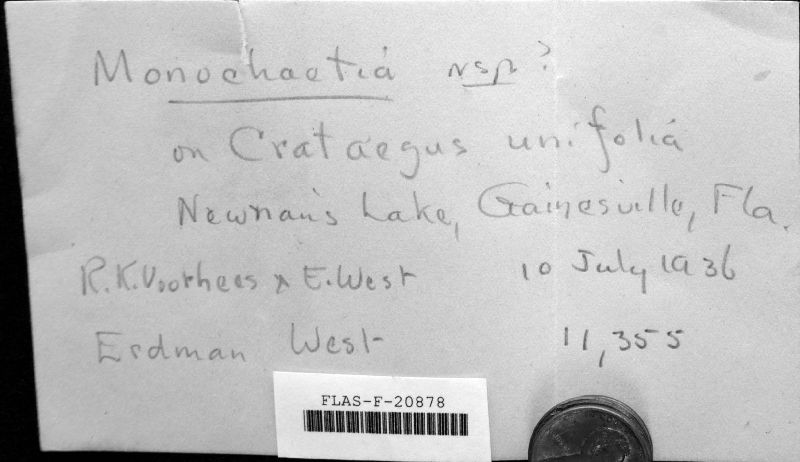 Monochaetia nsp?
on Crataegus unifolia
Newnan's Lake, Gainesville, Fla.
R.K.Voorhees & E.West 10 July 1936
Erdman West 11,355
FLAS-F-20878